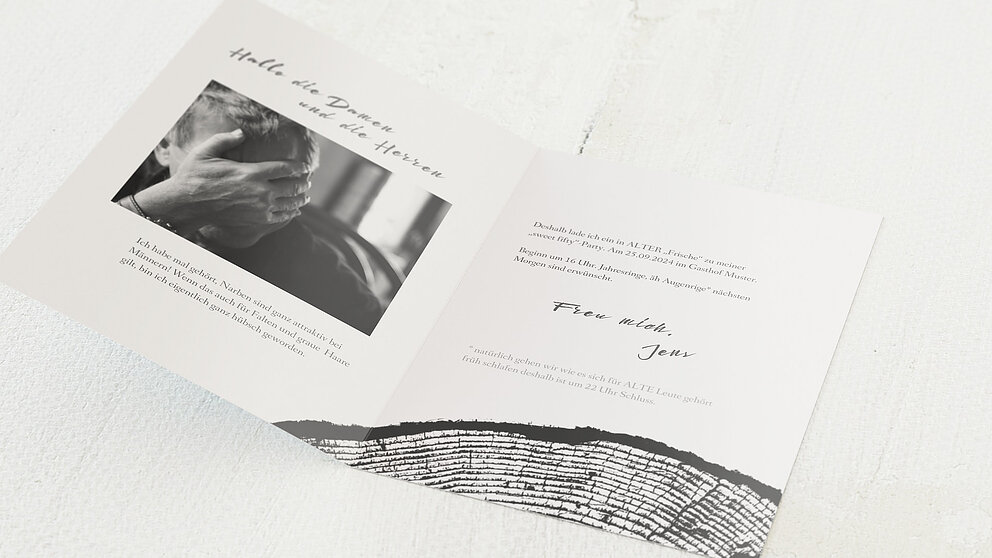 Hallo die Damen
und die Herren
Ich habe mal gehört, Narben sind ganz attraktiv bei
Männern! Wenn das auch für Falten und graue Haare
gilt, bin ich eigentlich ganz hübsch geworden.
Deshalb lade ich ein in ALTER „Frische“ zu meiner
„sweet fifty“ Party. Am 25.09.2024 im Gasthof Muster.
Beginn um 16 Uhr. Jahresringe, äh Augenrige* nächsten
Morgen sind erwünscht.
Freu mich,
Jens
* natürlich gehen wir wie es sich für ALTE Leute gehört
früh schlafen deshalb ist um 22 Uhr Schluss.